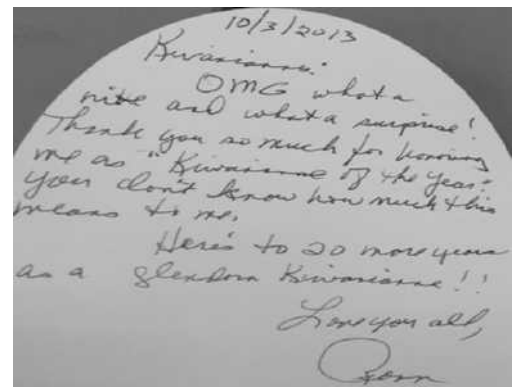 10/3/2013
Kiwanianne:
OMG what a
nite and what a surprise!
Thank you so much for honoring
me as "Kiwanianne of the Year."
You don't know how much this
means to me.
Here's to 20 more years
as a Glendora Kiwanianne!!
Love you all,